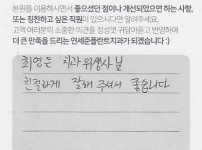 본원을 이용하시면서 좋으셨던 점이나 개선되었으면 하는 사항,
또는 칭찬하고 싶은 직원이 있으시다면 알려주세요.
고객 여러분의 소중한 의견을 정성껏 귀담아듣고 반영하여
더 큰 만족을 드리는 연세준플란트치과가 되겠습니다 :)
최영은 치과위생사님
친절하게 잘해 주셔서 좋습니다